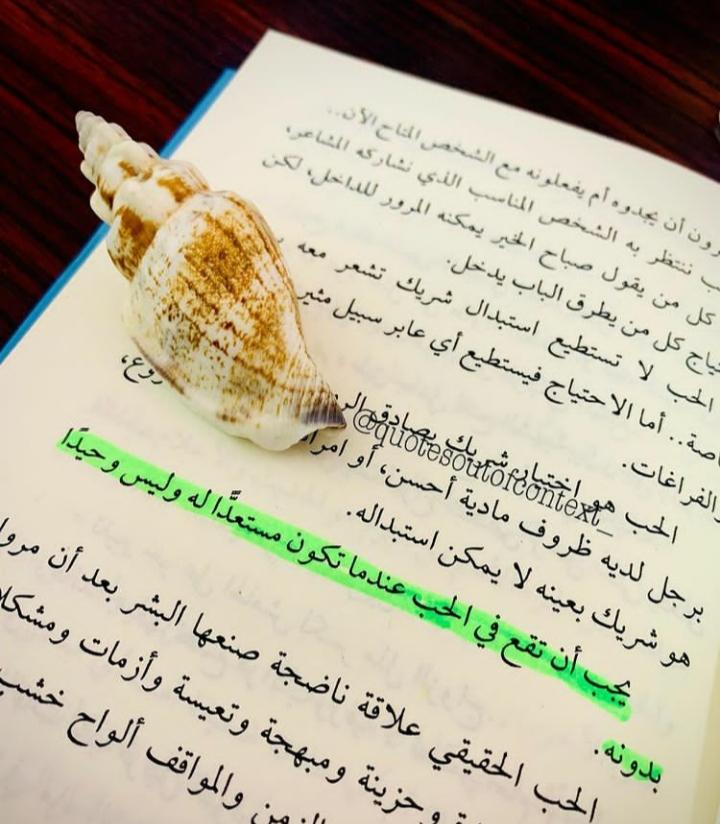 رون أن يجدوه أم يفعلونه مع الشخص المتاح الآن..
ب ننتظر به الشخص المناسب الذي نشاركه المشاعر،
كل من يقول صباح الخير يمكنه المرور للداخل، لكن
كل من يطرق الباب يدخل.
الحب لا تستطيع استبدال شريك تشعر معه
صة.. أما الاحتياج فيستطيع أي عابر سبيل
الفراغات.
الحب هو اختيار شريك يصادق
برجل لديه ظروف مادية أحسن، أو
هو شريك بعينه لا يمكن استبداله.
يجب أن تقع في الحب عندما تكون مستعدًّا له وليس وحيدًا
بدونه.
الحب الحقيقي علاقة ناضجة صنعها البشر بعد أن مروا
وحزينة ومبهجة وتعيسة وأزمات
الزمن والمواقف ألواح خشب
@quotesoutofcontext_